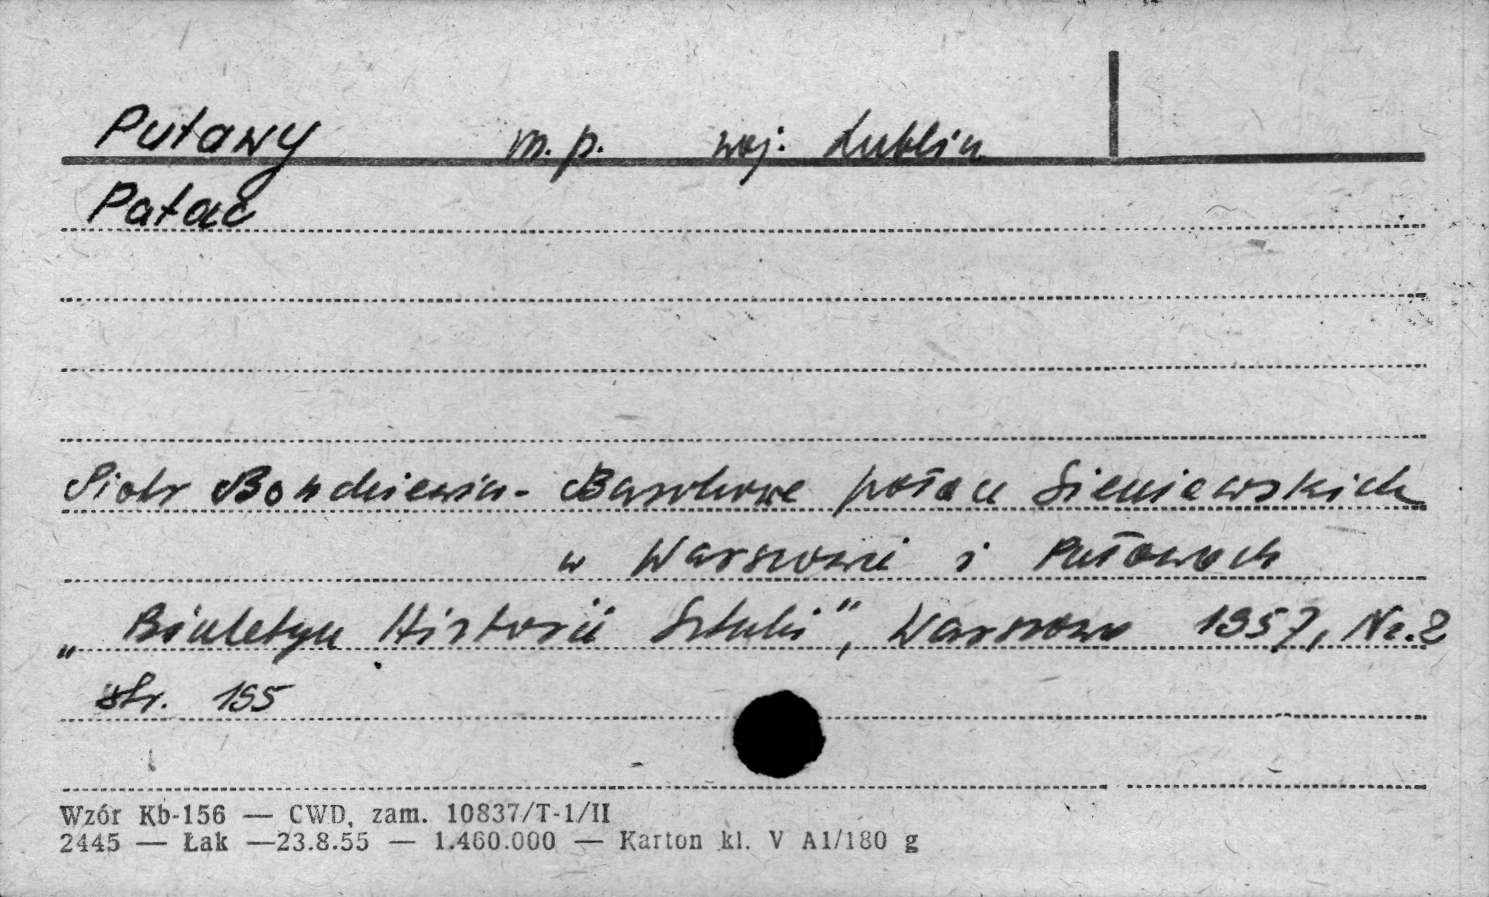 Puławy m.p. woj. Lublin
Pałac
Piotr Bohdziewicz - Barokowe pałace Sieniawskich
w Warszawie i Puławach
„Biuletyn Historii Sztuki”, Warszawa 1957, Nr. 2
str. 155
Wzór Kb-156 — CWD, zam. 10837/T-1/II
2445 — Łak —23.8.55 — 1.460.000 — Karton kl. V A1/180 g